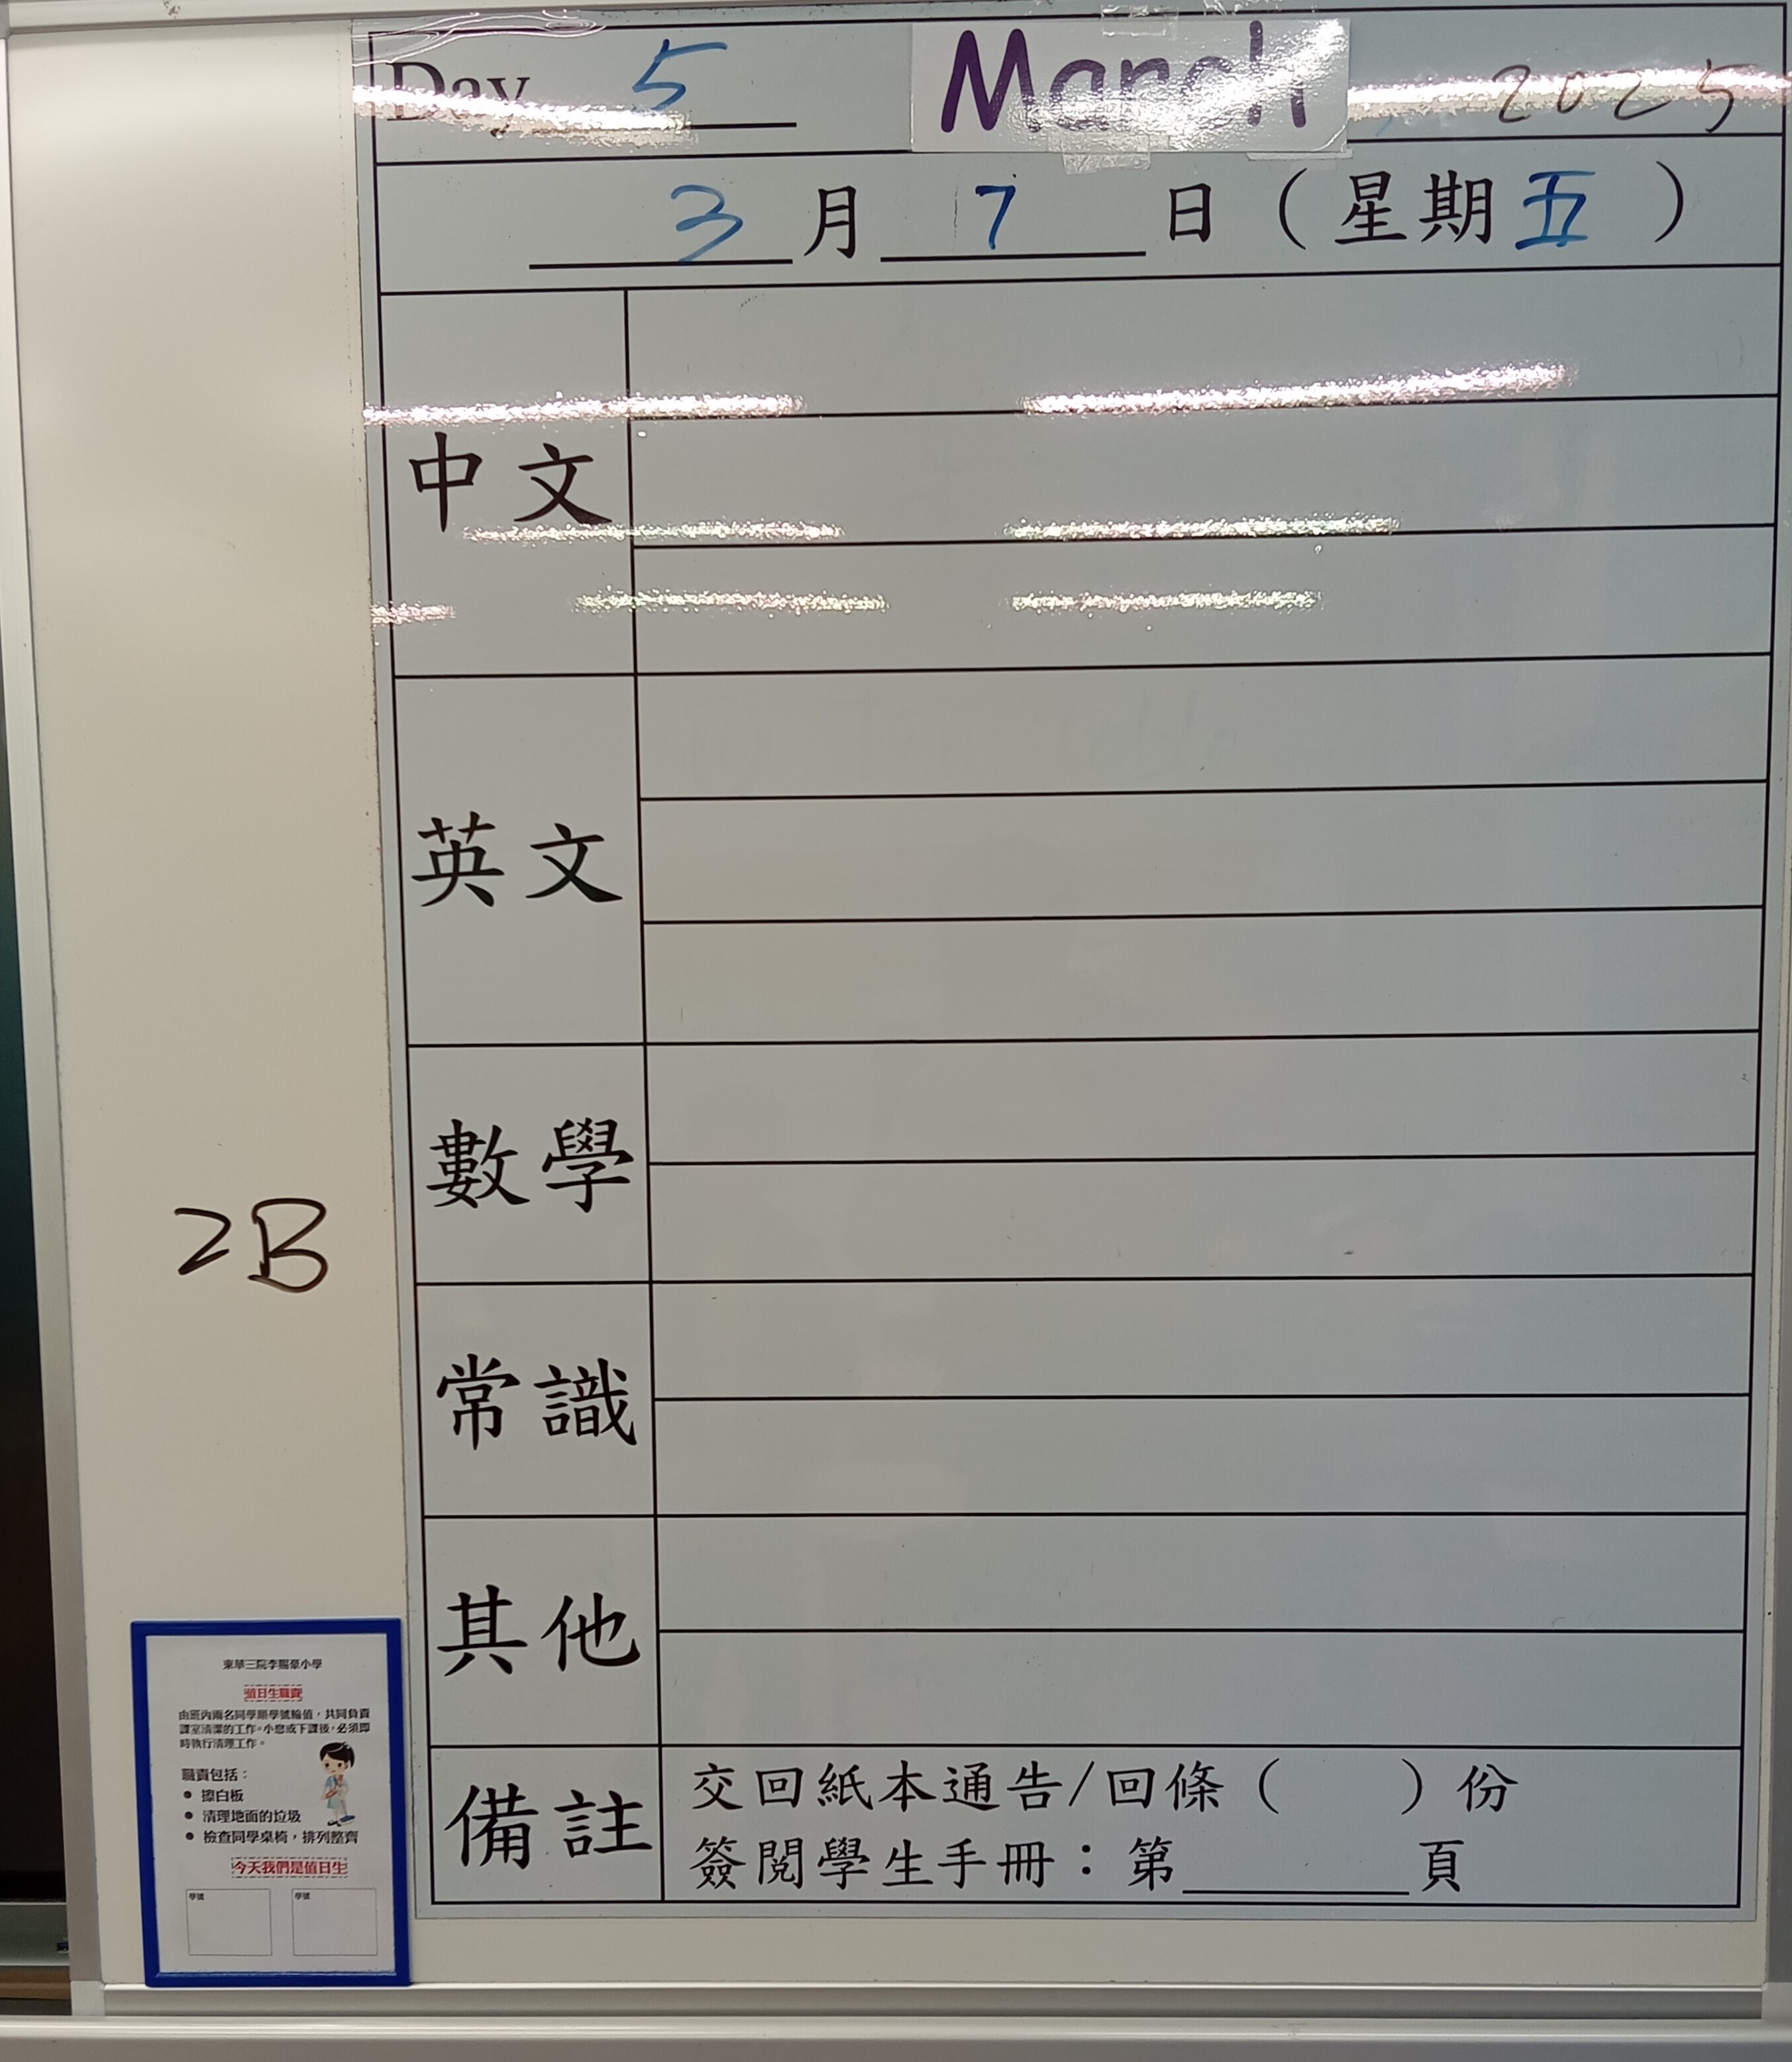 Day 5 March , 2025
3 月 7 日 ( 星期五 )
中文
英文
數學
常識
其他
備註
交回紙本通告/回條 ( ) 份
簽閱學生手冊：第______頁
2B
東華三院李賜豪小學
值日生職責
由班內兩名同學順學號輪值，共同負責
課室清潔的工作。小息或下課後，必須即
時執行清理工作。
職責包括：
● 擦白板
● 清理地面的垃圾
● 檢查同學桌椅，排列整齊
今天我們是值日生
學號 學號